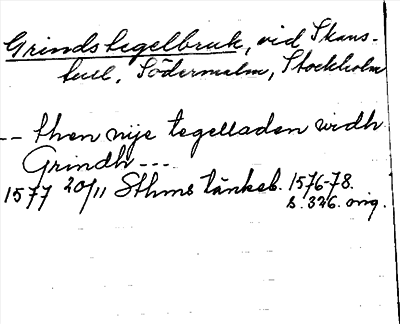 Grinds tegelbruk, vid Skans-
tull, Södermalm, Stockholm
-- then nije tegelladen widh
Grindh ---
1577 20/11 Sthms tänkeb. 1576-78.
s. 326. orig.